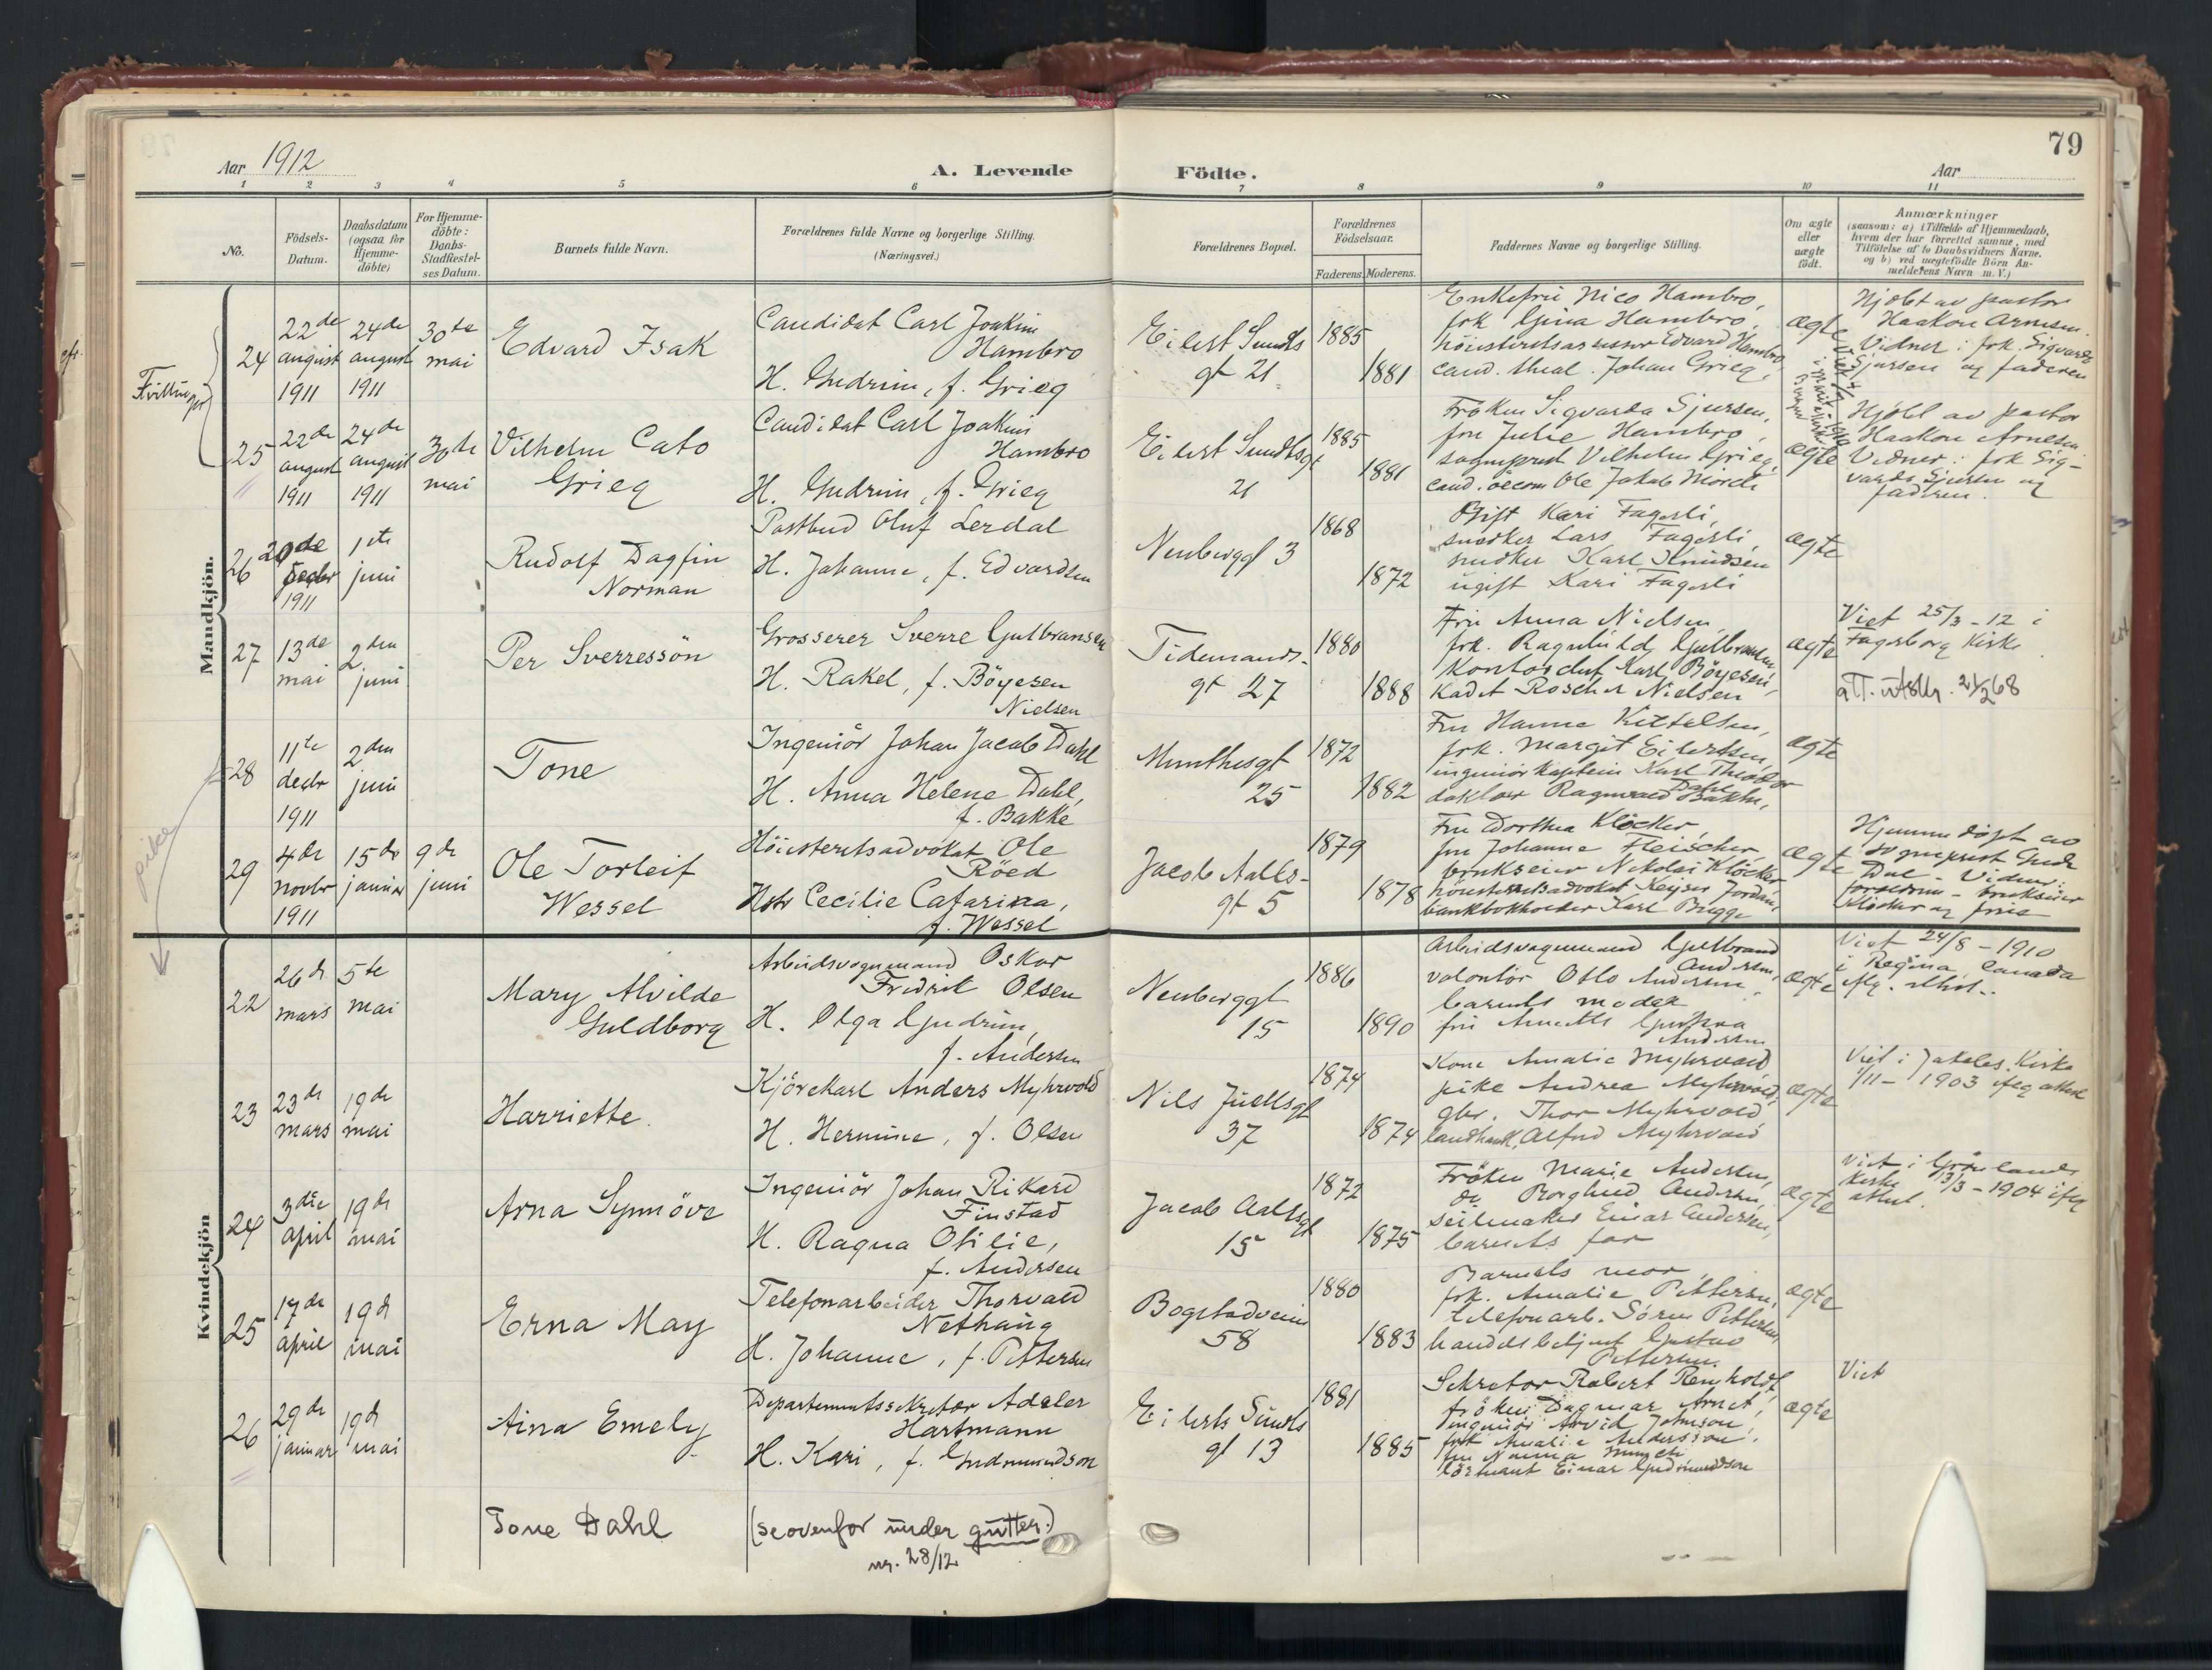 79
Aar 1912
A. Levende
Födte.
Aar
1 2 3 4 5 6 7 8 9 10 11
No.
Födsels-
Datum.
Daabsdatum
(ogsaa for
Hjemme-
döbte)
For Hjemme-
döbte:
Daabs-
Stadfæstel-
ses Datum.
Barnets fulde Navn.
Forældrenes fulde Navne og borgerlige Stilling.
(Næringsvei.)
Forældrenes Bopæl.
Forældrenes
Födselsaar.
Faderens. Moderens.
Faddernes Navne og borgerlige Stilling.
Om ægte
eller
uægte
födt.
Anmærkninger
(saasom: a) i Tilfælde af Hjemmedaab,
hvem der har forrettet samme, med
Tilföielse af to Daabsvidners Navne.
og b) ved uægtefödte Börn An-
melderens Navn m. V.)
Mandkjön.
24
22de
august
1911
24de
august
1911
30te
mai
Edvard Isak
Candidat Carl Joakim
Hambro
H. Gudrun, f. Grieg
Eilert Sundts
gt 21
1885
1881
Enkefru Nico Hambro,
frk Gina Hambro,
höiesteretsassessor Edvard Hambro,
cand. theol. Johan Grieg,
ægte
Hjdbt av pastor
Haakon Arnesen.
Vidner: frk. Sigvarda
Sjursen og faderen
25
22de
august
1911
24de
august
1911
30te
mai
Vilhelm Cato
Grieg
Candidat Carl Joakim
Hambro
H. Gudrun, f. Grieg
Eilert Sundtsgt
21
1885
1881
Fröken Sigvarda Sjursen,
fru Julie Hambro,
sogneprest Vilhelm Grieg,
cand. oecon Ole Jakob
ægte
Hjdbt av pastor
Haakon Arnesen
Vidner: frk Sig-
varda Sjursen og
faderen.
26
20de
decbr
1911
1ste
juni
Rudolf Dagfin
Norman
Postbud Oluf Lerdal
H. Johanne, f. Edvardsen
Neuberggt 3
1868
1872
Gift Kari Fagerli,
snedker Lars Fagerli
snedker Karl Knudsen
ugift Kari Fagerli
ægte
27
13de
mai
2den
juni
Per Sverressön
Grosserer Sverre Gulbransen
H. Rakel, f. Böyesen
Nielsen
Tidemands-
gt 27
1880
1888
Fru Anna Nielsen,
frk. Ragnhild Gulbransen,
Kontorchef Karl Böyesen,
Kadet Roscher Nielsen
ægte
Viet 25/3-12 i
Fagerborg Kirke
att. utstr. 21/2 68
28
11te
decbr
1911
2den
juni
Tone
Ingeniör Johan Jacob Dahl
H. Anna Helene Dahl,
f. Bakke
Munthesgt
25
1872
1882
Fru Hanne Kittelsen,
frk. Margit Eilertsen,
ingeniörkaptein Karl Theodor
Dahl
doktor Ragnvald Bakke,
ægte
29
4de
novbr
1911
15de
januar
9de
juni
Ole Torleif
Wessel
Höiesteretsadvokat Ole
Röed
Hstr Cecilie Catarina,
f. Wessel
Jacob Aalls-
gt 5
1879
1878
Fru Dorthea Klöcker
fru Johanne Fleischer
brukseier Nikolai Klöcker
höiesteretsadvokat Keyser Jordan,
bankbokholder Karl Brigge
ægte
Hjemmedöpt av
sogneprest Gude
Dal - Vidner:
forældrene - brukseier
Klöcker og frue
Kvindekjön
22
26de
mars
5te
mai
Mary Alvilde
Guldborg
Arbeidsvognmand Oskar
Fredrik Olsen
H. Olga Gudrun,
f. Andersen
Neuberggt
15
1886
1890
Arbeidsvognmand Gulbrand
Andersen,
volontör Otto Andersen
barnets moder
fru Annette
Andersen
ægte
Viet 24/8-1910
i Regina, Canada
iflg. attest.
23
23de
mars
19de
mai
Harriette.
Kjörekarl Anders Myhrvold
H. Hermine, f. Olsen
Nils Juellsgt
37
1874
1874
Kone Amalie Myhrvold
pike Andrea Myhrvold,
gbr. Thor Myhrvold
landhandl. Alfred Myhrvold
ægte
Viet i Jakobs Kirke
1/11-1903 iflg attest
24
3die
april
19de
mai
Arna Synnöve
Ingeniör Johan Rikard
Finstad
H. Ragna Otilie,
f. Andersen
Jacob Aallsgt
15
1872
1875
Fröken Marie Andersen,
do Borghild Andersen,
seilmaker Einar Andersen,
barnets far
ægte
Viet i Grönlands
Kirke 13/3-1904 iflg
attest.
25
17de
april
19de
mai
Erna May
Telefonarbeider Thorvald
Nethaug
H. Johanne, f. Pettersen
Bogstadveien
58
1880
1883
Barnets mor,
frk. Amalie Pettersen,
telefonarb. Sören Pettersen,
handelsbetjent Gustav
Pettersen.
ægte
26
29de
januar
19de
mai
Aina Emely
Departementssekretær Adeler
Hartmann
H. Kari, f. Gudmundson
Eilerts Sundts
gt 13
1881
1885
Sekretær Robert Renholdt,
fröken Dagmar Arnet,
ingeniör Arvid Johnson,
frk Amalie Andersson,
fru Nanna
löitnant Einar Gudmundson
ægte
Viet
Tone Dahl
(se ovenfor under gutter.)
nr. 28/12
Tvillinger
pike